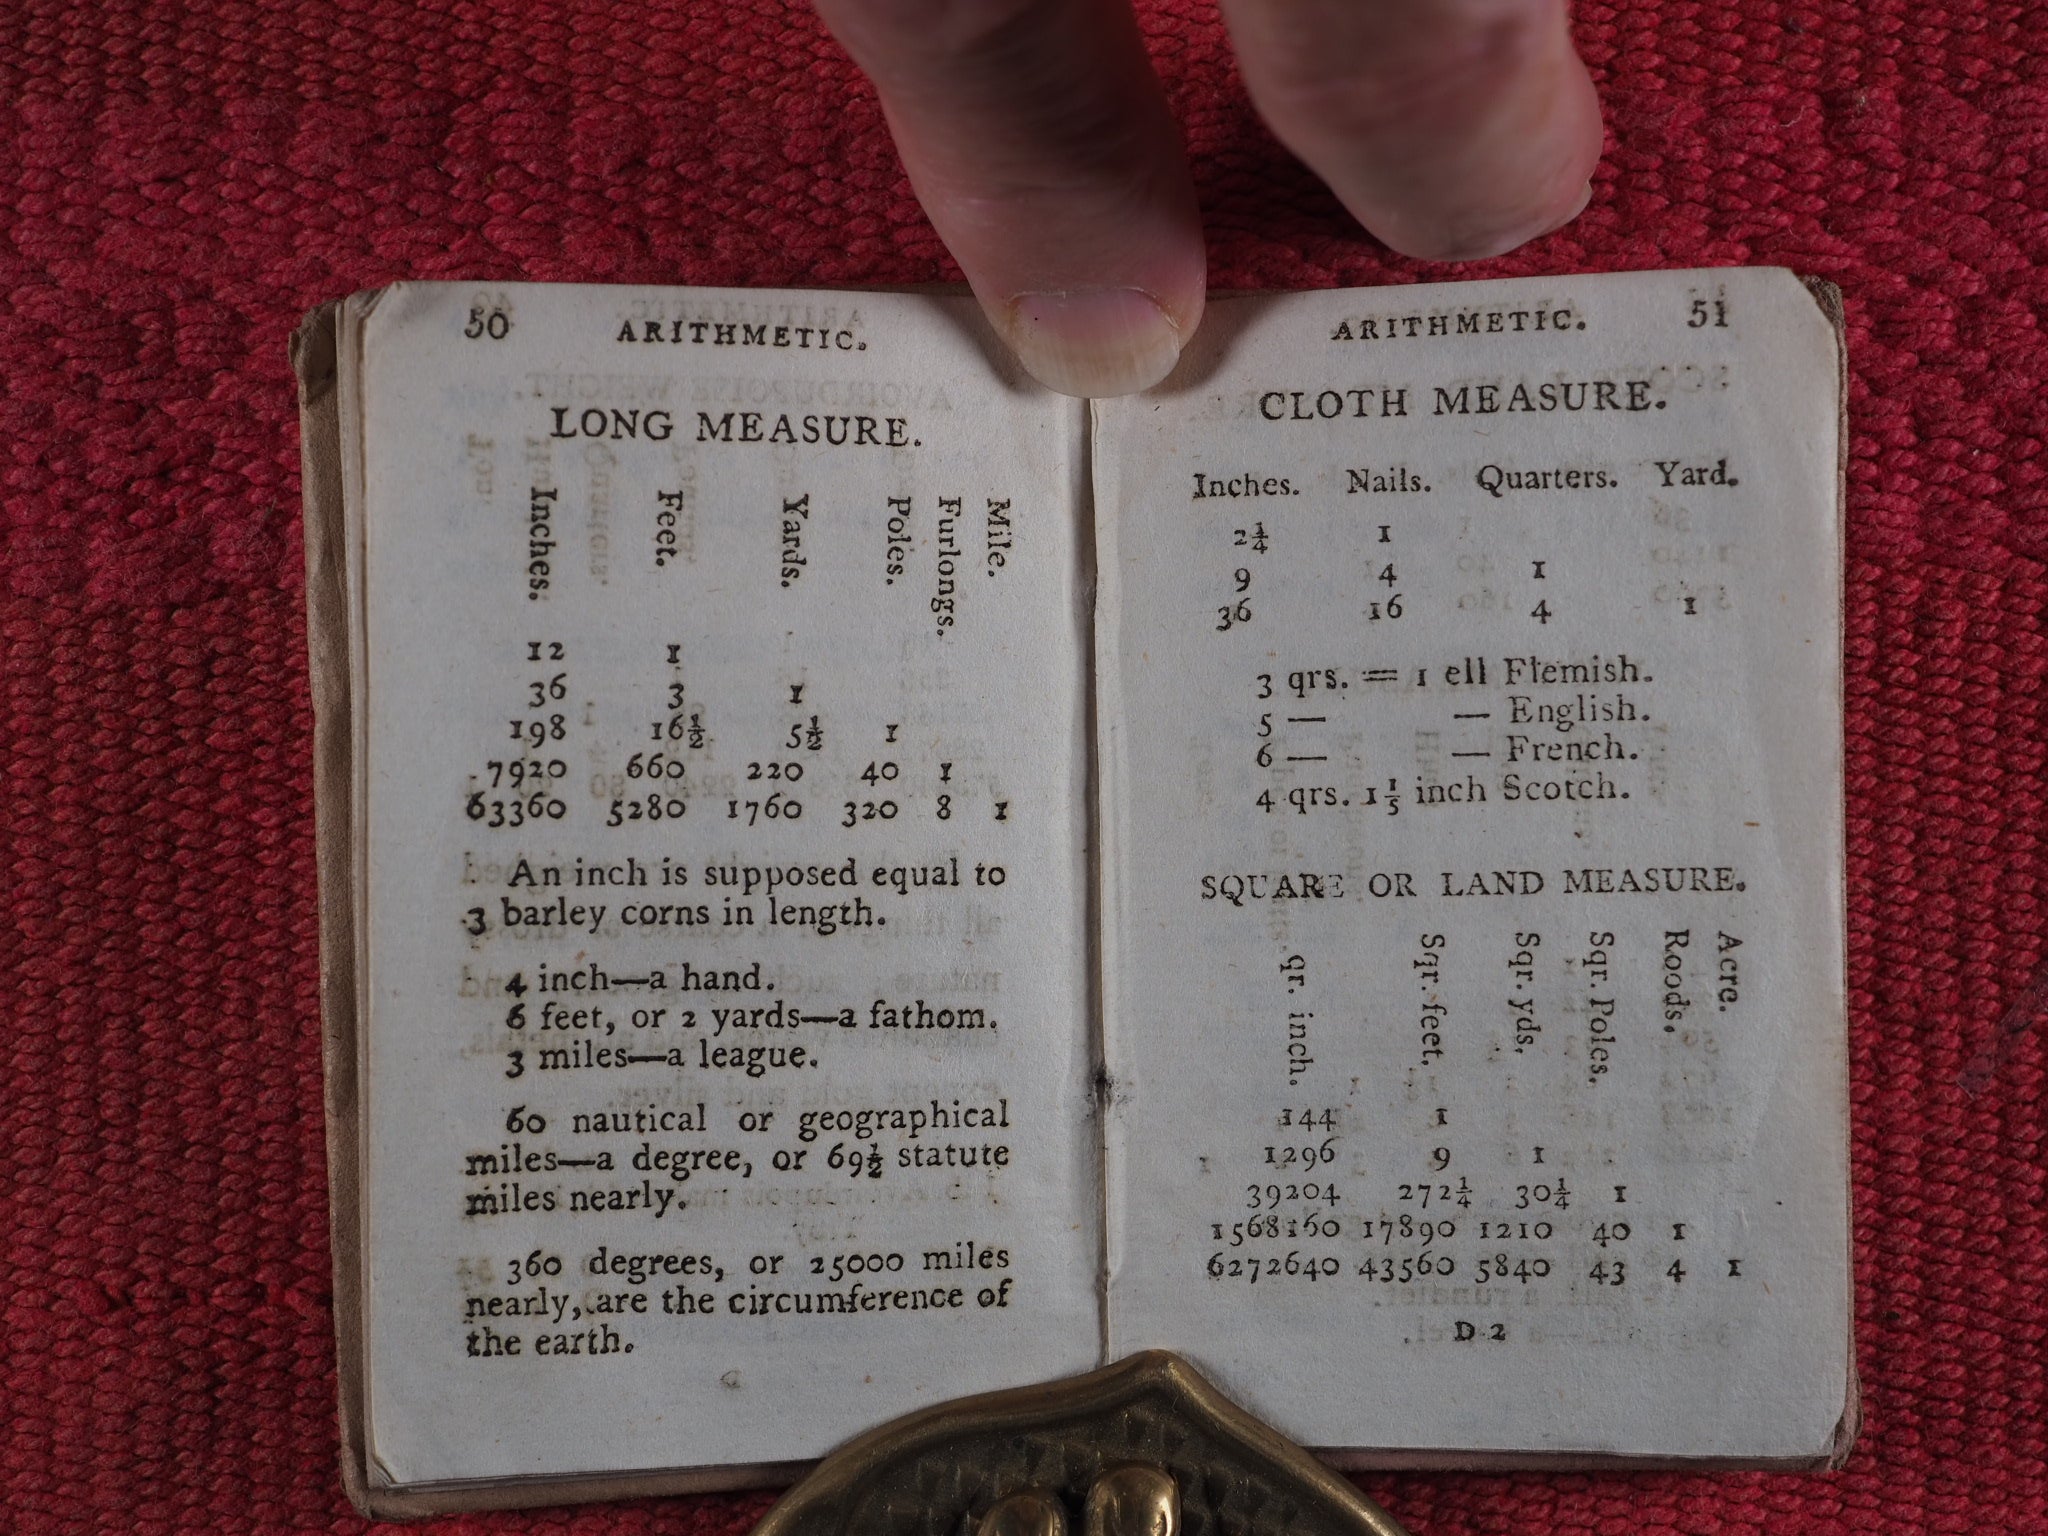 50 ARITHMETIC.
LONG MEASURE.
Inches. Feet. Yards. Poles. Furlongs. Mile.
12 1
36 3 1
198 16½ 5½ 1
7920 660 220 40 1
63360 5280 1760 320 8 1
An inch is supposed equal to
3 barley corns in length.
4 inch—a hand.
6 feet, or 2 yards—a fathom.
3 miles—a league.
60 nautical or geographical
miles—a degree, or 69½ statute
miles nearly.
360 degrees, or 25000 miles
nearly, are the circumference of
the earth.
ARITHMETIC. 51
CLOTH MEASURE.
Inches. Nails. Quarters. Yard.
2¼ 1
9 4 1
36 16 4 1
3 qrs. = 1 ell Flemish.
5 — — English.
6 — — French.
4 qrs. 1⅕ inch Scotch.
SQUARE OR LAND MEASURE.
qr. inch. Sqr. feet. Sqr. yds. Sqr. Poles. Roods. Acre.
144 1
1296 9 1
39204 272¼ 30¼ 1
1568160 17890 1210 40 1
6272640 43560 5840 43 4 1
D 2